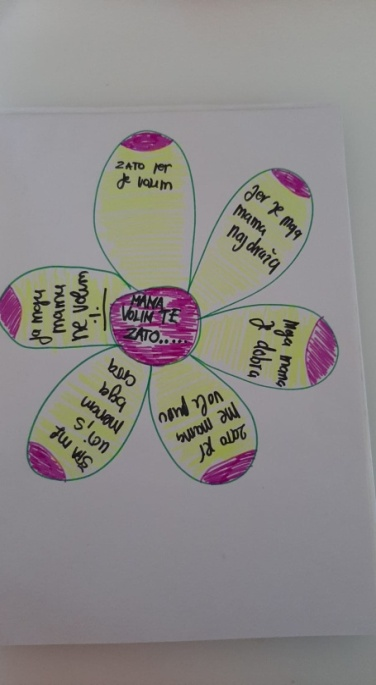 MAMA
VOLIM TE
ZATO.....
ZATO JER
je volim
Jer je moja
mama
najdraža
Moja mama
je dobra
ZATO JER
me mama
voli puno
me
uči, s
ja moju
mamu
ne volim